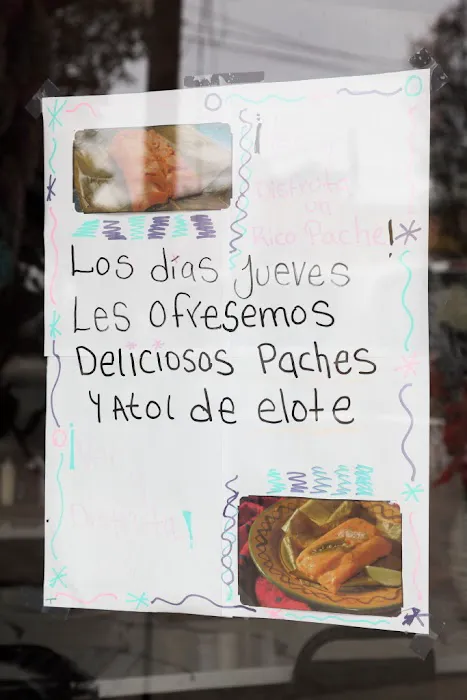 ¡
Disfruta
un
Rico Pache!
Los días jueves
Les ofresemos
Deliciosos Paches
Y Atol de elote
¡
!